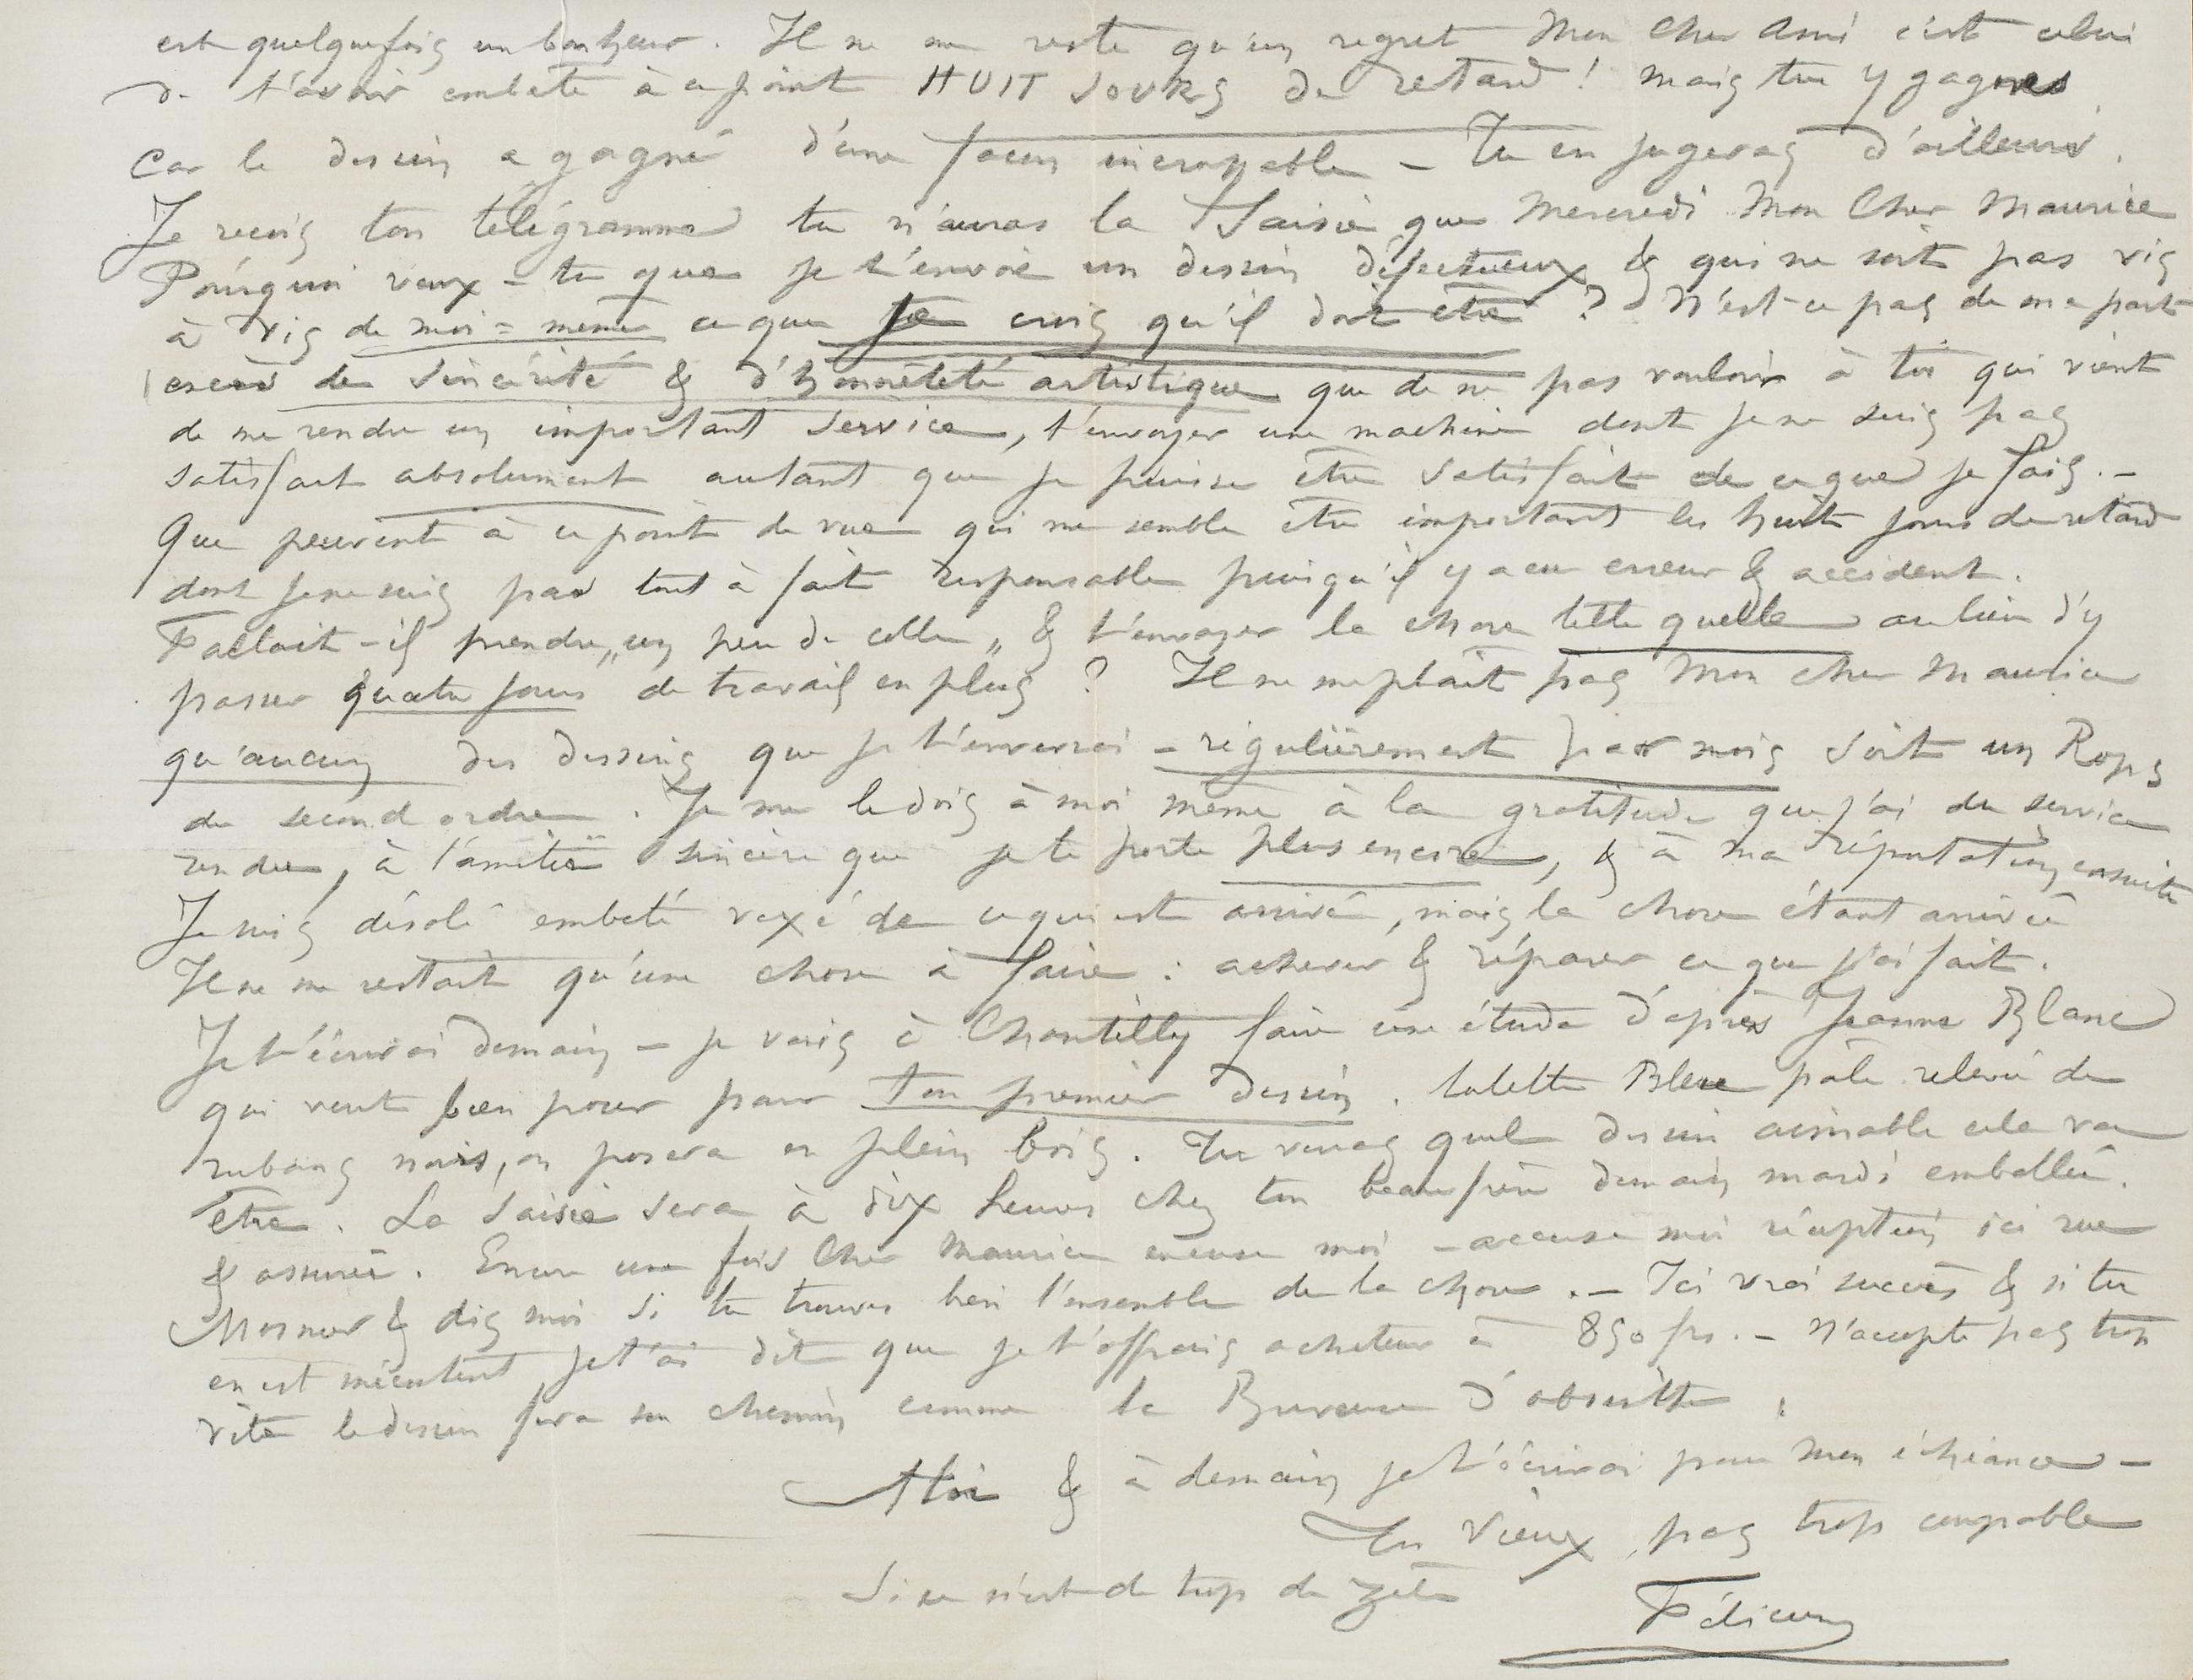 est quelquefois un bonheur. Il ne me reste qu'un regret Mon Cher Ami c'est celui
de t'avoir embêté à ce point HUIT JOURS de retard ! mais tu y gagnes
Car le dessin a gagné d'une façon incroyable – Tu en jugeras d'ailleurs.
Je reçois ton télégramme tu n'auras la Saisie que Mercredi Mon Cher Maurice
Pourquoi veux-tu que je t'envoie un dessin défectueux & qui ne soit pas vis
à vis de moi=même ce que je crois qu'il doit être ? N'est-ce pas de ma part
excès de sincérité & d'honnêteté artistique que de ne pas vouloir à toi qui vient
de me rendre un important service, t'envoyer une machine dont je ne suis pas
satisfait absolument autant que je puisse être satisfait de ce que je fais. –
Que peuvent à ce point de vue qui me semble être important les huit jours de retard
dont je ne suis pas tout à fait responsable puisqu'il y a eu erreur & accident.
Fallait-il prendre „un peu de colle„ & t'envoyer la chose telle quelle au lieu d'y
passer quatre jours de travail en plus ? Il ne me plait pas Mon cher Maurice
qu'aucun des dessins que je t'enverrai – régulièrement par mois soit un Rops
de second ordre. Je me le dois à moi même à la gratitude que j'ai du service
rendu, à l'amitié sincère que je te porte plus encore, & à ma réputation ensuite
Je suis désolé embeté vexé de ce qui est arrivé, mais la chose étant arrivée
Il ne me restait qu'une chose à faire : achever & réparer ce que j'ai fait.
Je t'écrirai demain – je vais à Chantilly faire une étude d'après Jeanne Blanc
qui veut bien poser pour ton premier dessin. toilette Bleue pâle relevé de
rubans noirs, on posera en plein bois. Tu verras quel dessin aimable cela va
être. La Saisie sera à dix heures chez ton beau frère demain mardi emballée.
& assurée. Encore une fois Cher Maurice excuse moi – accuse moi réception ici rue
Mosnier & dis moi si tu trouves bien l'ensemble de la chose. – Ici vrai succès & si tu
en est mécontent je t'ai dit que je t'offrais acheteur à 850 frs. – N'accepte pas trop
vite le dessin fera son chemin comme la Buveuse d'absinthe.
A toi & à demain je t'écrirai pour mon échéance –
Ton Vieux pas trop coupable
Si ce n'est de trop de zèle
Félicien